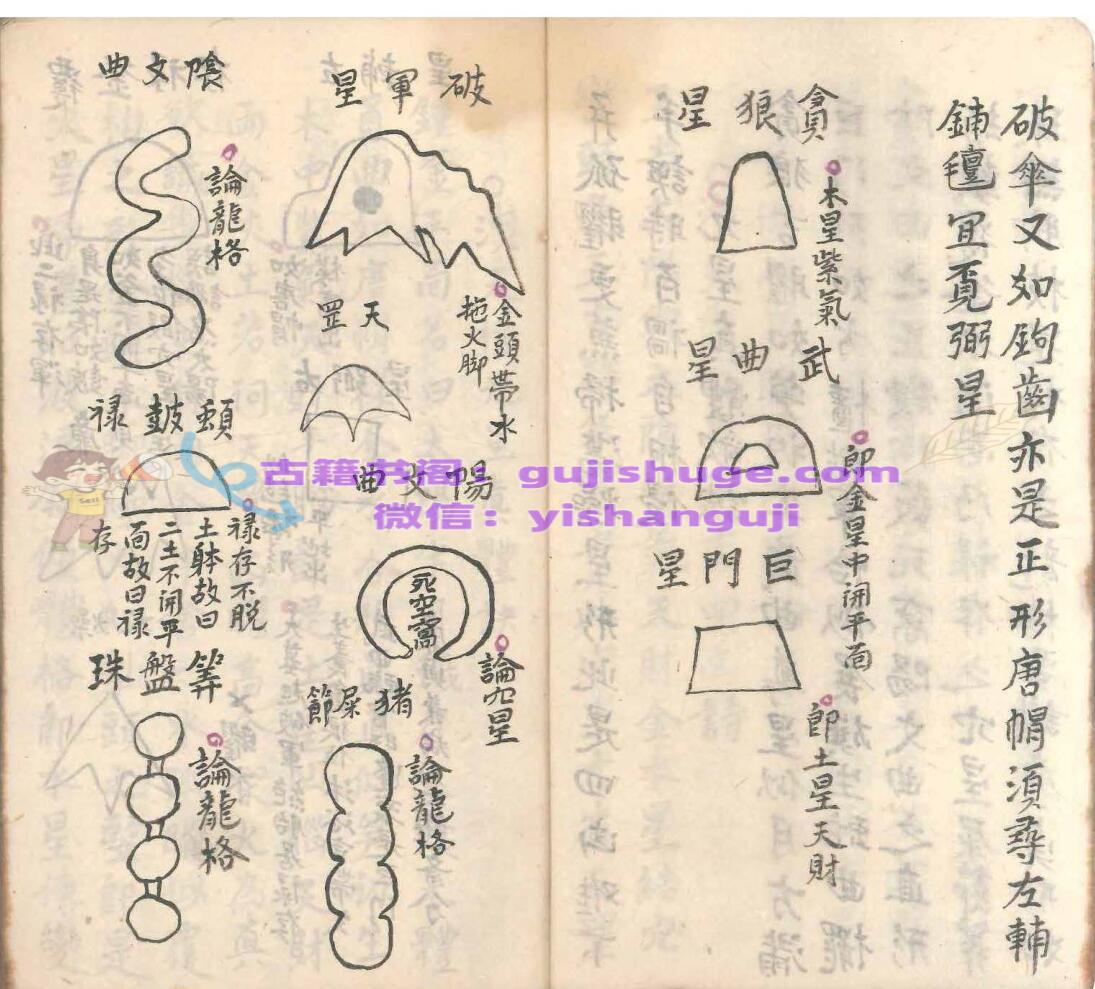 破傘又如鉤齒亦是正形唐帽須尋左輔
鋪氊宜覔弼星
貪狼星
木星紫氣
武曲星
即金星中開平面
巨門星
即土星天財
破軍星
金頭帶水
拖火脚
天罡
陽文曲
死空窩
論九星
猪屎節
論龍格
陰文曲
論龍格
頓鼓禄
禄存不脱
土躰故曰
二土不開平
面故曰禄
存
筭盤珠
論龍格
古籍书阁：gujishuge.com
微信：yishanguji